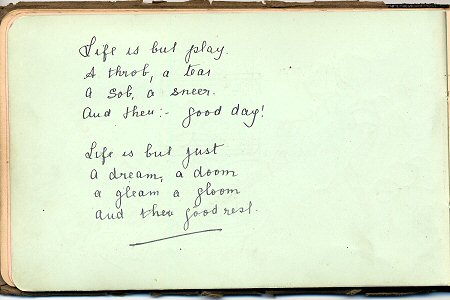 Life is but play.
A throb, a tear
a sob, a sneer.
And then:- good day!
Life is but just
a dream, a doom
a gleam a gloom
and then good rest.